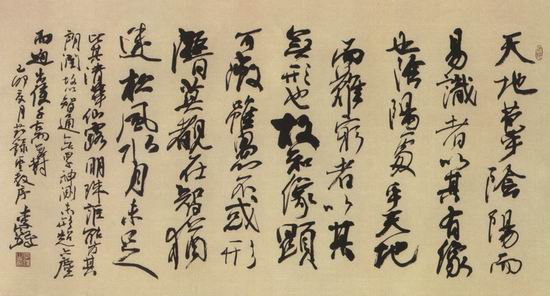 天地苞乎陰陽而
易識者以其有像
也陰陽處乎天地
而難窮者以其
無形也故知像顯
可徵雖愚不惑形
潛莫覩在智猶
迷松風水月未足
比其清華仙露明珠詎能方其
朗潤故以智通無累神測未形超六塵
而迥出隻千古
卯夏月錄聖教序 李鐸